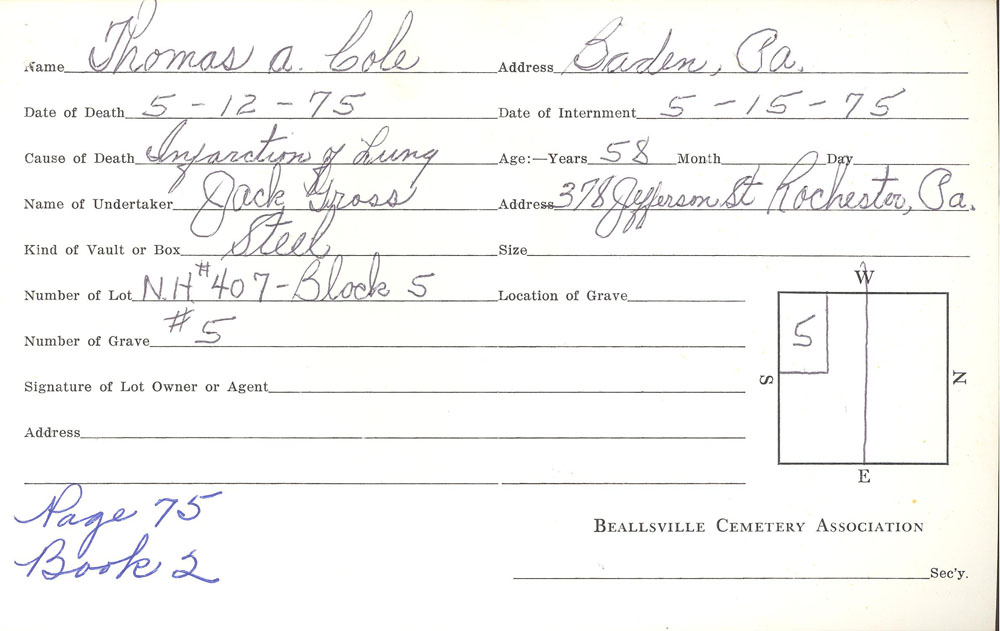 Name Thomas A. Cole Address Baden, Pa.
Date of Death 5-12-75 Date of Internment 5-15-75
Cause of Death Infarction of Lung Age:—Years 58 Month Day
Name of Undertaker Jack Gross Address 378 Jefferson St Rochester, Pa.
Kind of Vault or Box Steel Size
Number of Lot N.H #407-Block 5 Location of Grave
W
Number of Grave #5
5
S N
Signature of Lot Owner or Agent
Address
E
Page 75
Book 2
BEALLSVILLE CEMETERY ASSOCIATION
Sec'y.